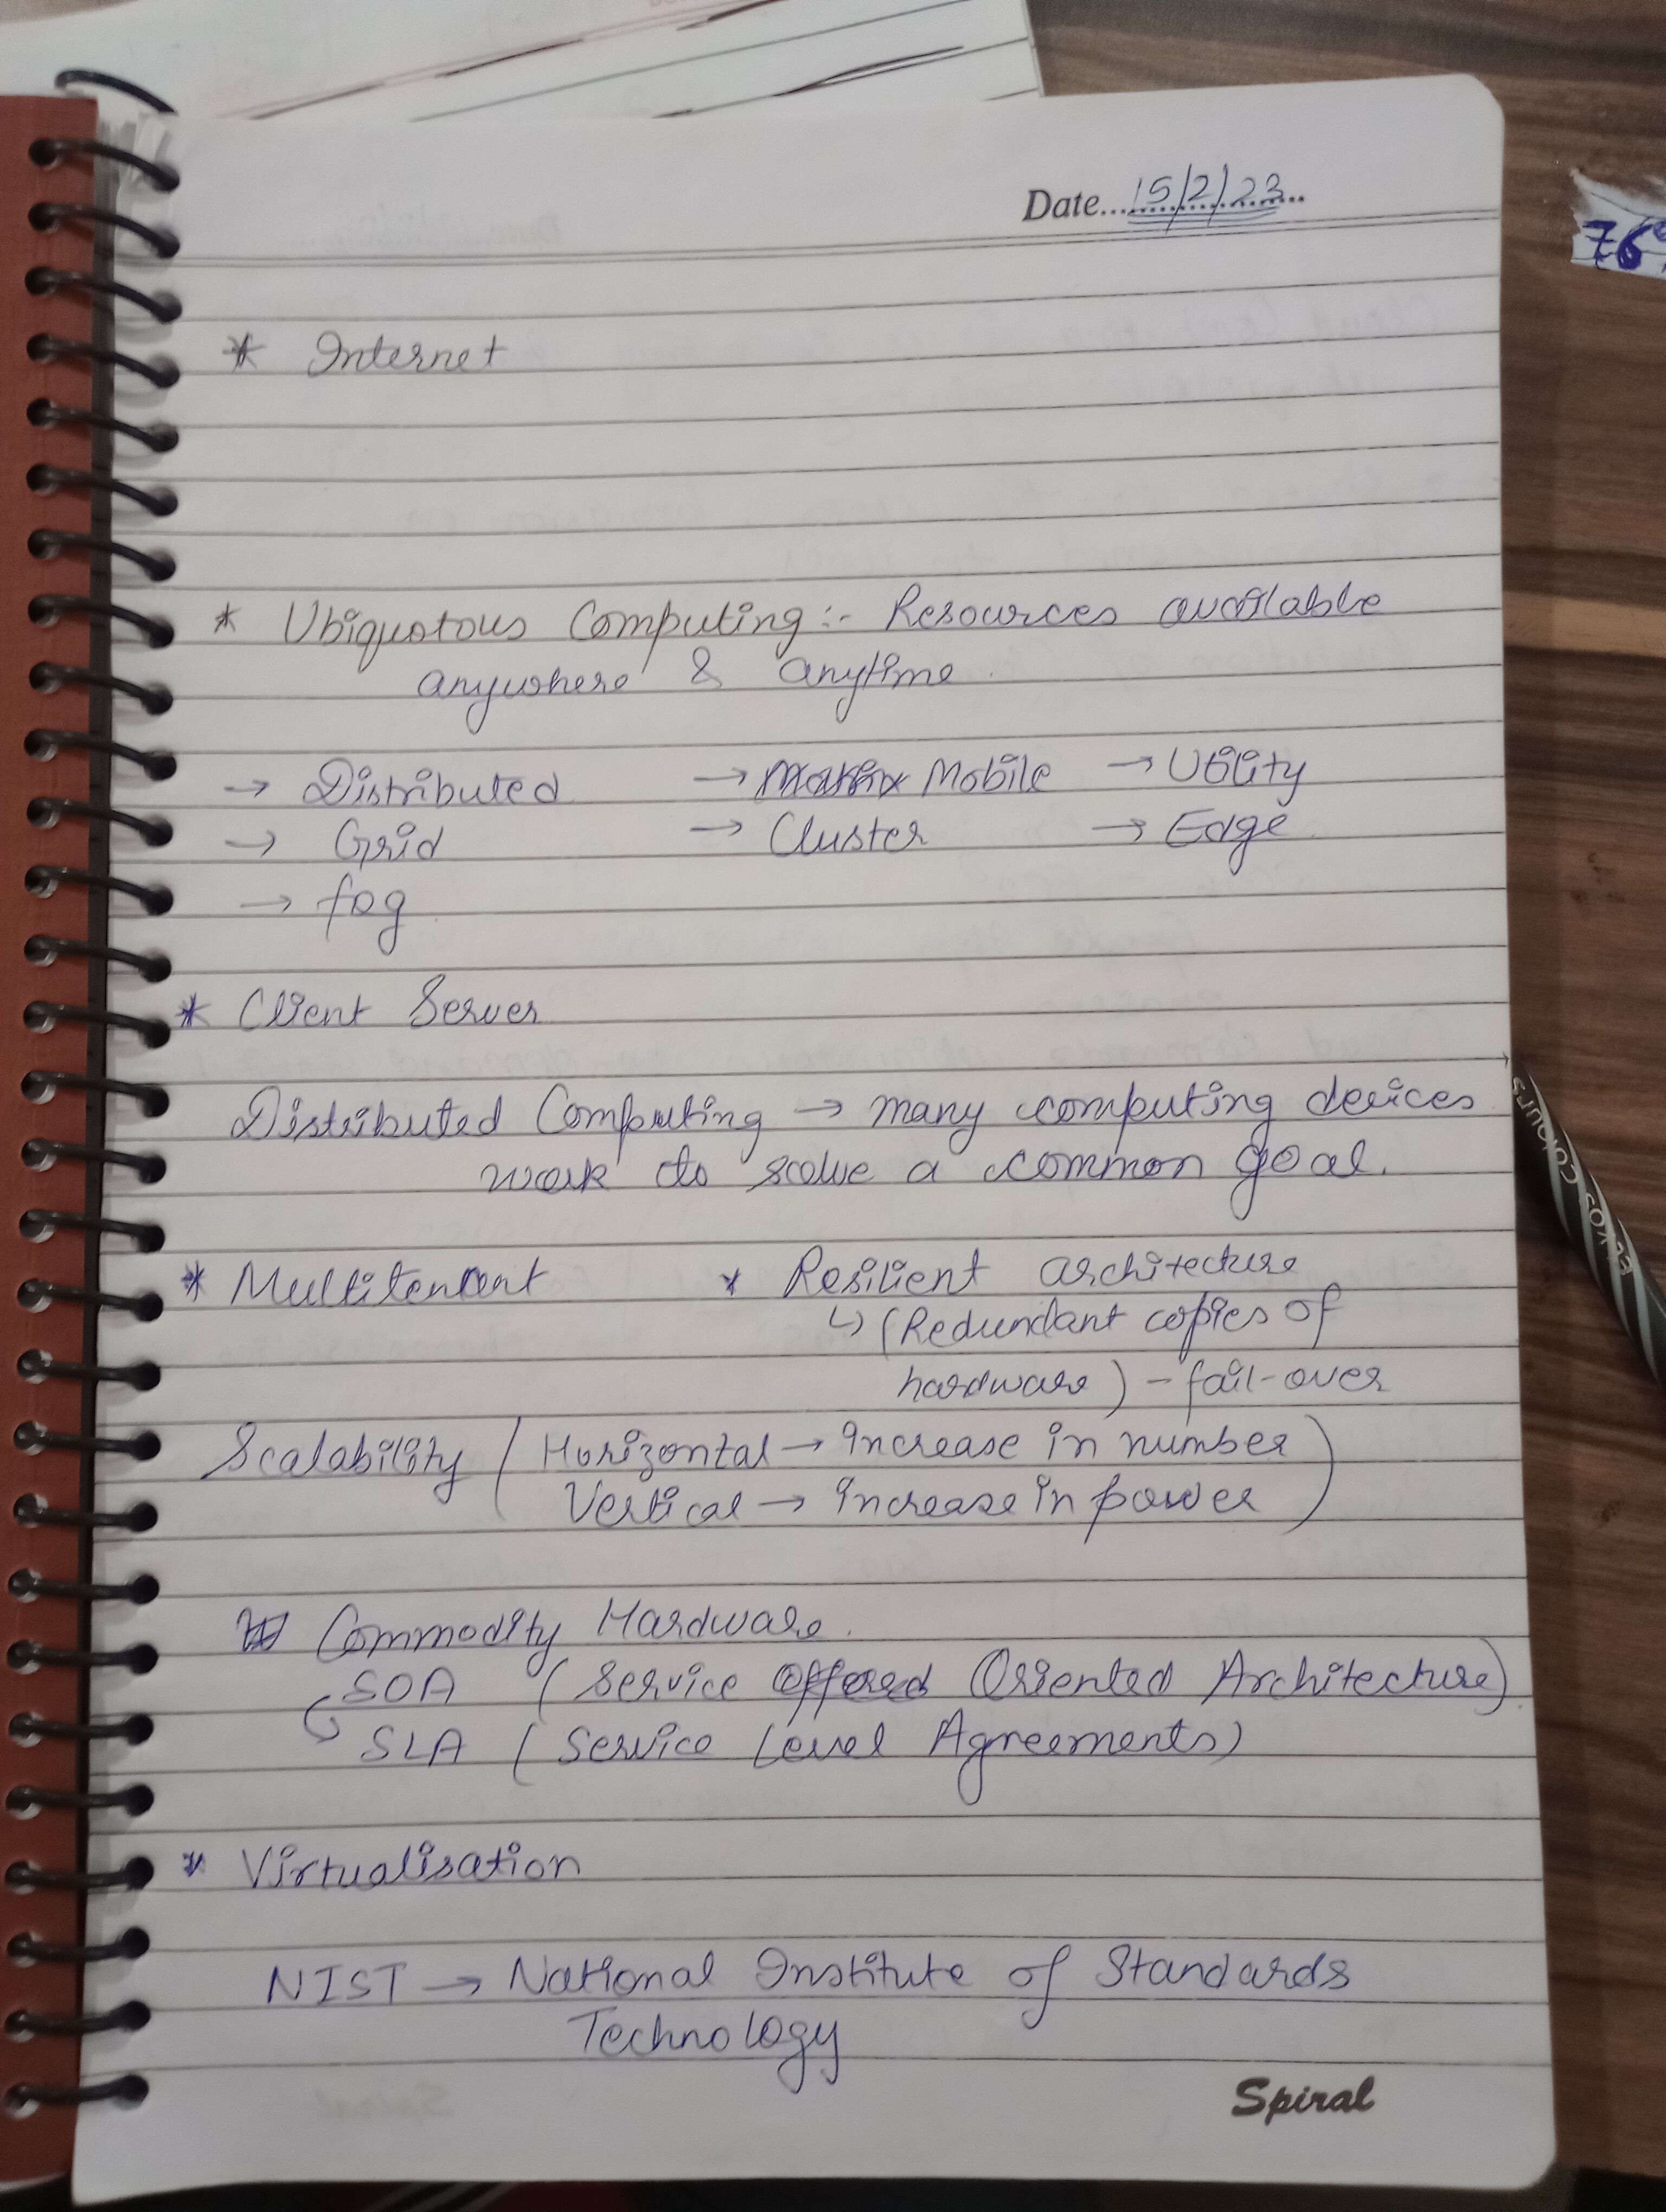 Date....15/2/23..
* Internet
* Ubiquotous Computing :- Resources available
anywhere & anytime
→ Distributed → Mobile → Utility
→ Grid → Cluster → Edge
→ fog
* Client Server
Distributed Computing → many computing devices
work to solve a common goal.
* Multitenant * Resilient architecture
↳ (Redundant copies of
hardware) - fail-over
Scalability ( Horizontal → Increase in number
Vertical → increase in power )
Commodity Hardware.
SOA (Service Offered Oriented Architecture)
SLA (Service Level Agreements)
* Virtualisation
NIST → National Institute of Standards
Technology
Spiral
76
COLOURS